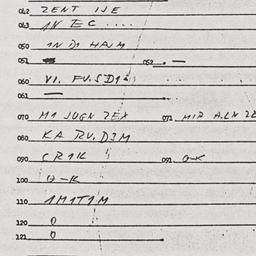 042 ZENT IJE
043 1N EC ....
050 1N D1 HAJM
051 052. —
060 V1. FU.SD1
061 —
070 M1 JUGN ZEX 071 MIR A.LN ZE
080 KA RU.D3M
090 CR1K 091 O-K
100 O-K
110 1M1T1M
120 0
121 0